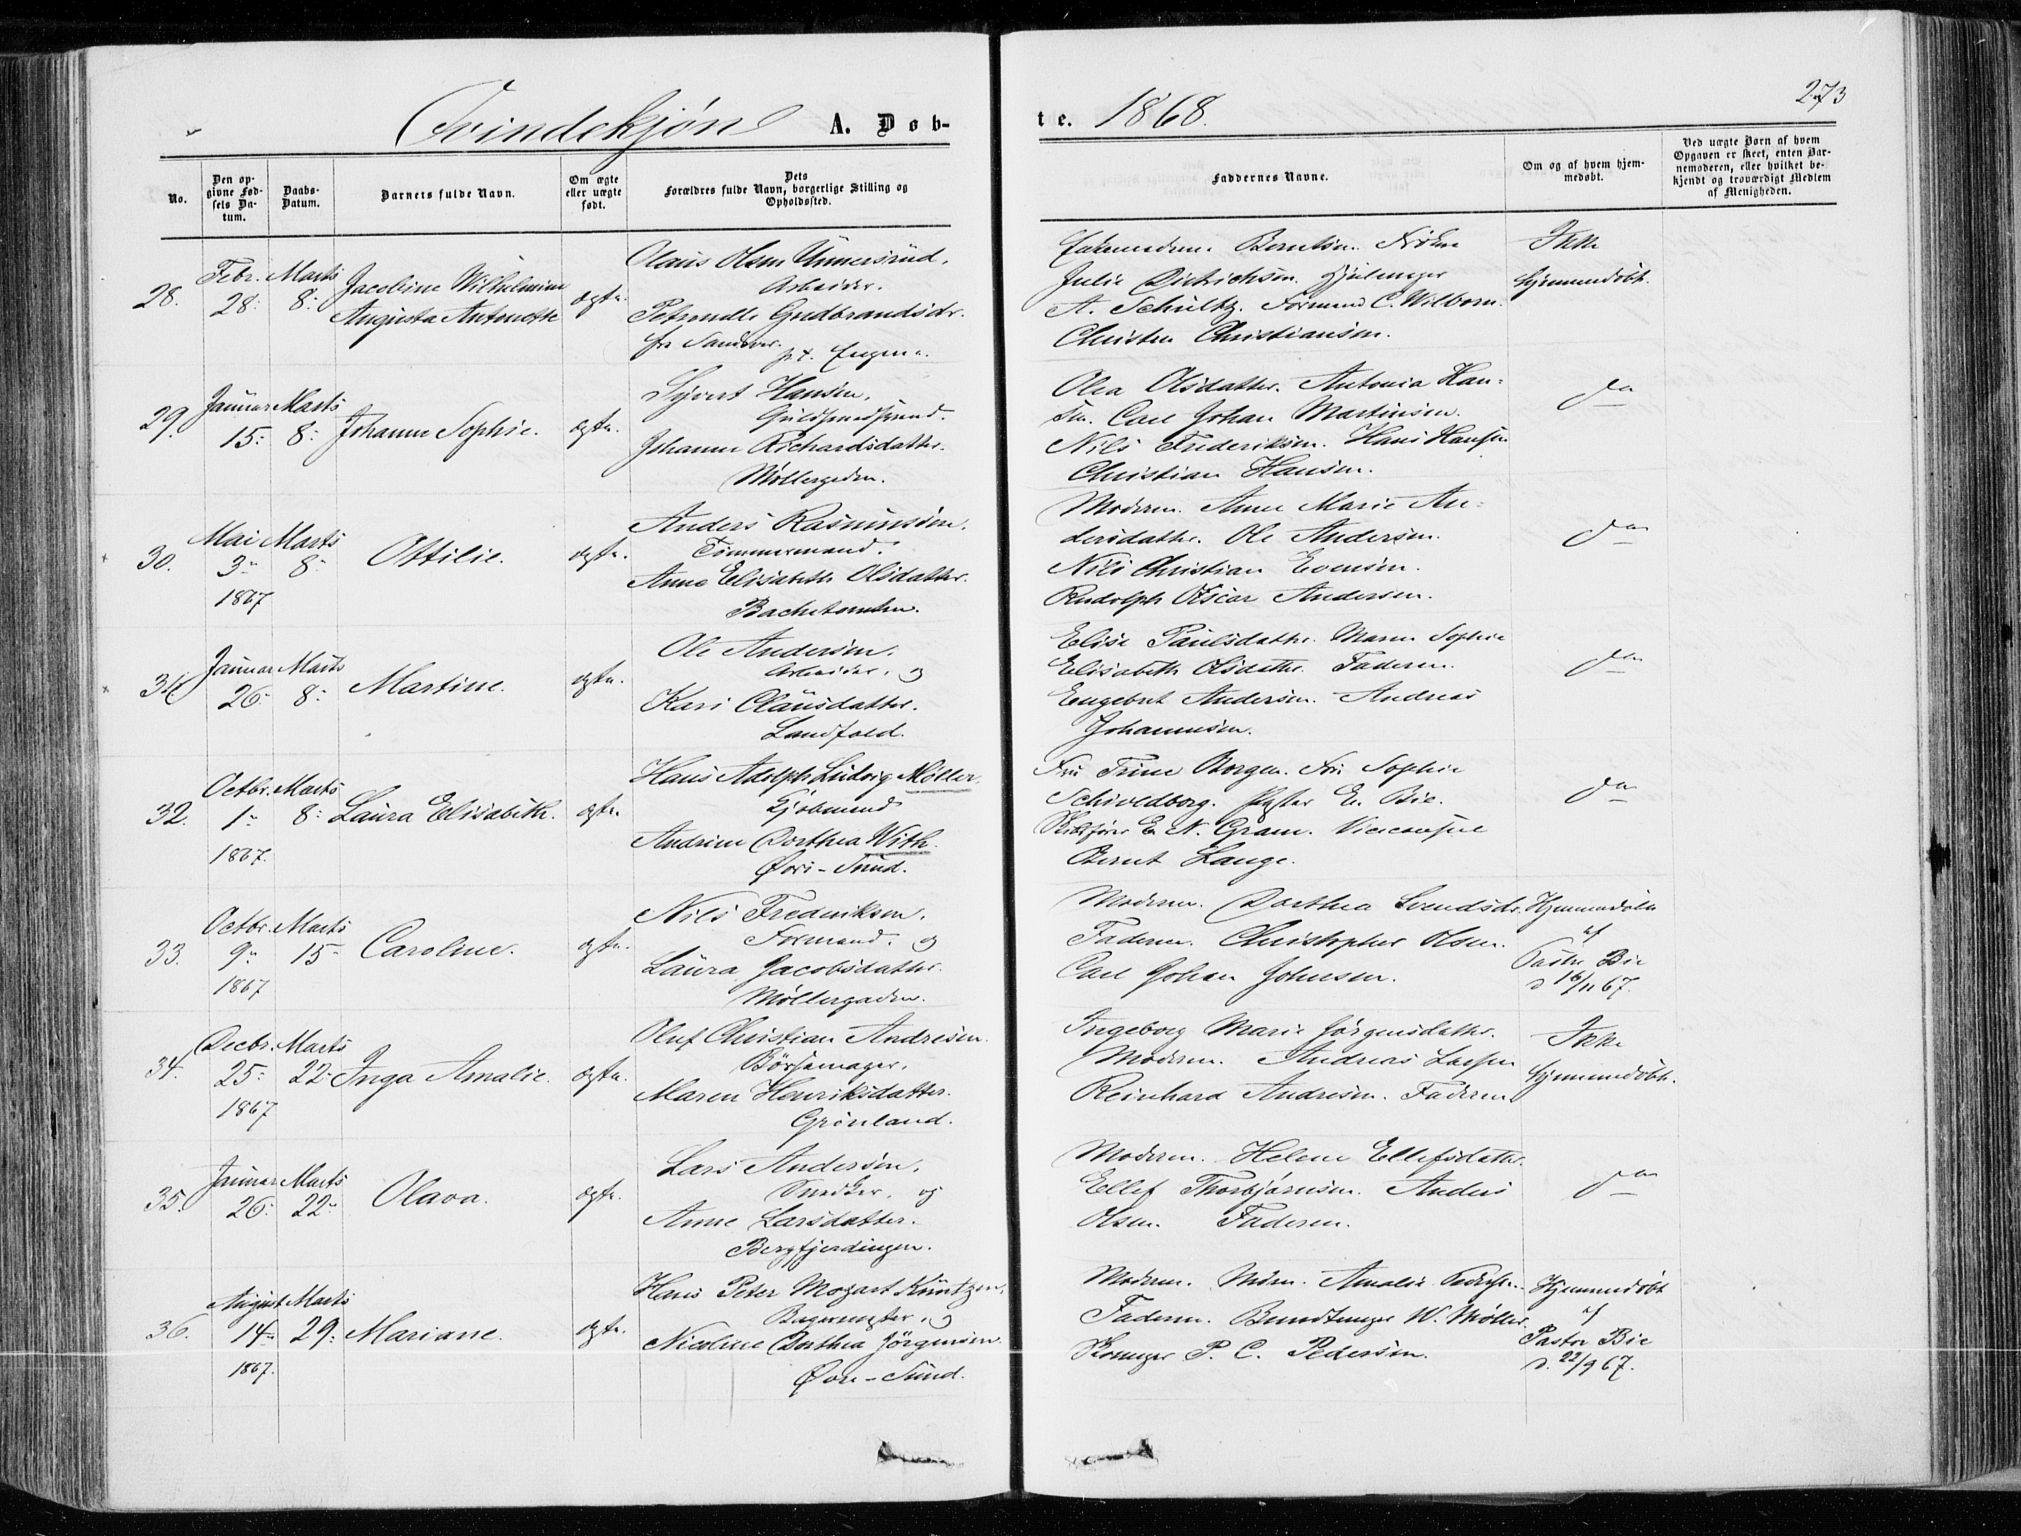 273
Qvindekjøn A. Døb-
te. 1868.
No.
Den op-
givne Fød-
sels Da-
tum.
Daabs-
Datum.
Barnets fulde Navn.
Om ægte
eller uægte
født.
Dets
Forældres fulde Navn, borgerlige Stilling og
Opholdssted.
Faddernes Navne.
Om og af hvem hjem-
medøbt.
Ved uægte Børn af hvem
Opgaven er skeet, enten Bar-
nemoderen, eller hvilket be-
kjendt og troværdigt Medlem
af Menigheden.
28.
Febr. 28.
Marts 8.
Jacobine Wilhelmine
Augusta Antonette
ægte.
Olaus Olsen Unnersrud,
Arbeider.
Petronelle Gudbrandsdr.
fra
p.t.
Berntsen. Frøken
Julie Dietrichsen.
A. Schultz. Formand C. Wilborn.
Christen Christiansen.
Ikke
hjemmedøbt.
29.
Januar 15.
Marts 8.
Johanne Sophie.
ægte.
Syvert Hansen,
Guldsmedsvend.
Johanne Richardsdatter.
Møllergaden.
Olea Olsdatter. Antonia Han-
sen. Carl Johan Martinsen.
Nils Frederiksen. Hans Hansen
Christian Hansen.
do
30.
Mai 3
1867
Marts 8
Ottilie.
ægte.
Anders Rasmussen,
Tømmermand.
Anne Elisabeth Olsdatter.
Bachetomten.
Moderen. Anne Marie An-
dersdatter. Ole Andersen.
Nils Christian Evensen.
Rudolph Oscar Andersen.
do
31.
Januar 26.
Marts 8.
Martine.
ægte.
Ole Andersen,
Arbeider, og
Kari Clausdatter.
Landfald.
Elise Paulsdatter. Maren Sophie
Elisabeth Olsdatter. Faderen.
Engebret Andersen. Andreas
Johannesen.
do
32.
Octbr. 1
1867.
Marts 8
Laura Elisabeth.
ægte.
Hans Adolph Ludvig Møller,
Kjøbmand
Andrine Dorthea With.
Øvre-Sund.
Fru Trine Borgen. Fru Sophie
Schioldborg. Pastor E. Bie.
E. N. Gram. Viceconsul
Bernt Lange.
do
33.
Octbr. 9
1867
Marts 15
Caroline.
ægte.
Nils Frederiksen,
Formand. og
Laura Jacobsdatter.
Møllergaden.
Moderen. Dorthea Svendsdr.
Faderen. Christopher Olsen.
Carl Johan Johnsen.
Hjemmedøbt
af
Pastor Bie
d 16/11 67.
34.
Decbr. 25
1867
Marts 22
Inga Amalie.
ægte.
Oluf Christian Andresen.
Børsemager,
Maren Henriksdatter.
Grønland.
Ingeborg Marie Jørgensdatter.
Moderen. Andreas Larsen
Reinhard Andresen. Faderen
Ikke
hjemmedøbt.
35.
Januar 26
Marts 22
Olava.
ægte.
Lars Andersen,
Snedker, og
Anne Larsdatter.
Bergfjerdingen.
Moderen. Helene Ellefsdatter.
Ellef Thorbjørnsen. Anders
Olsen. Faderen.
do
36.
August 14
1867.
Marts 29
Mariane.
ægte.
Hans Peter Mozart Küntzen,
Bagermester, og
Nicoline Dorthea Jørgensen.
Øvre-Sund.
Moderen. Amalie
Faderen. Bundtmager W. Møller.
P. C. Pedersen.
Hjemmedøbt
af
Pastor Bie
d. 22/9 67.